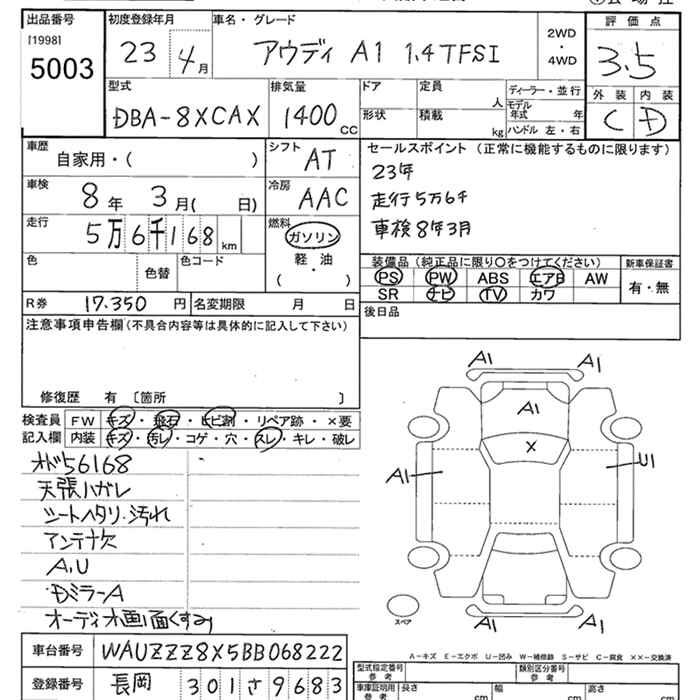 出品番号 初度登録年月 車名・グレード 評価点
[1998] 5003
23 4月 アウディ A1 1.4TFSI 2WD・4WD 3.5
外装 内装
C D
型式 排気量 ドア 定員 人 ディーラー・並行
DBA-8XCAX 1400cc 形状 積載 kg モデル年式 年
ハンドル 左・右
車歴 自家用・( ) シフト AT
セールスポイント(正常に機能するものに限ります)
23年
走行5万6千
車検8年3月
車検 8年 3月( 日) 冷房 AAC
走行 5万6千168km 燃料 ガソリン・軽油・( )
色 色替 色コード
装備品(純正品に限り○をつけてください) 新車保証書
PS PW ABS エアB AW 有・無
SR ナビ TV カワ
R券 17.350円 名変期限 月 日
後日品
注意事項申告欄(不具合内容等は具体的に記入して下さい)
修復歴 有 〔箇所 〕
検査員記入欄 FW キズ・飛石・ヒビ割・リペア跡・×要
内装 キズ・汚れ・コゲ・穴・スレ・キレ・破レ
オド56168
天張ハガレ
シートヘタリ・汚れ
アンテナ欠
A,U
DミラーA
オーディオ画面くすみ
A1 A1
A1
X
A1 U1
A1 A1
スペア
A-キズ E-エクボ U-凹み W-補修跡 S-サビ C-腐食 ××-交換済
車台番号 WAUZZZ8X5BB068222
登録番号 長岡 301 さ 9683
型式指定番号 参考 類別区分番号 参考
車庫証明用 参考 長さ cm 幅 cm 高さ cm